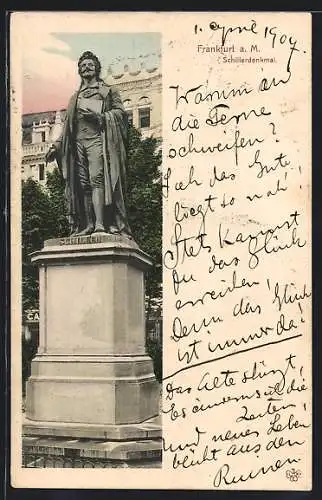 1. April 1904
Frankfurt a. M.
Schillerdenkmal.
Warum in
die Ferne
schweifen?
Sieh das Gute
liegt so nah!
Stets kannst
du das Glück
erreichen
Denn das Glück
ist immer da!
Das Alte stürzt,
Es ändern sich die
Zeiten,
und neues Leben
blüht aus den
Ruinen
SCHILLER
CA